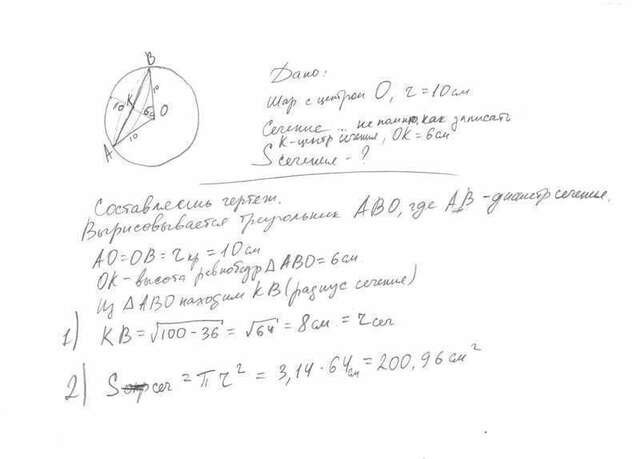 B
10
K
10
6
O
10
A
Дано:
Шар с центром O, r = 10 см
Сечение ... не помню, как записать
K - центр сечения, OK = 6 см
S сечения - ?
Составляешь чертеж.
Вырисовывается треугольник ABO, где AB - диаметр сечения.
AO = OB = r кр = 10 см
OK - высота равнобедр △ABO = 6 см
Из △ABO находим KB (радиус сечения)
1) KB = √100 - 36 = √64 = 8 см = r сеч
2) S сеч = πr² = 3,14 · 64 см = 200,96 см²